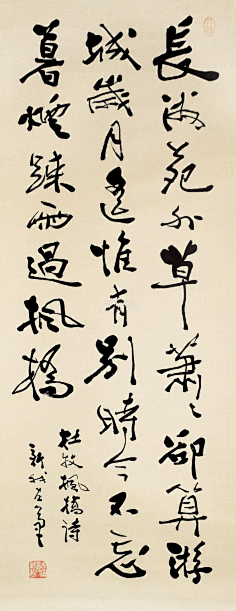 長洲苑外草蕭〻卻算游
城歲月遥惟有別時今不忘
暮煙踈雨過楓橋
杜牧楓橋詩
新我左筆